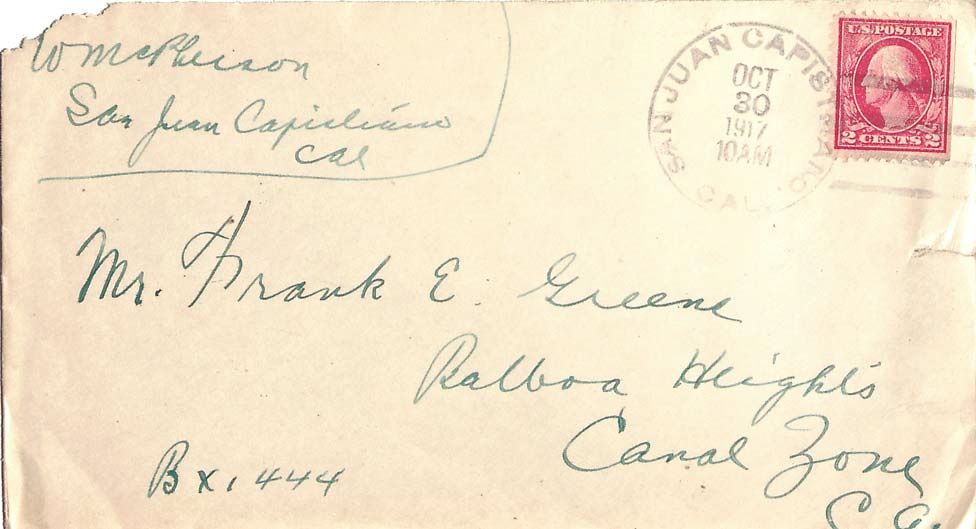 W McPherson
San Juan Capistrano
Cal
SAN JUAN CAPISTRANO
CAL.
OCT
30
1917
10AM
U.S. POSTAGE
2 CENTS 2
Mr. Frank E. Greene
Balboa Heights
Canal Zone
Bx. 444
C